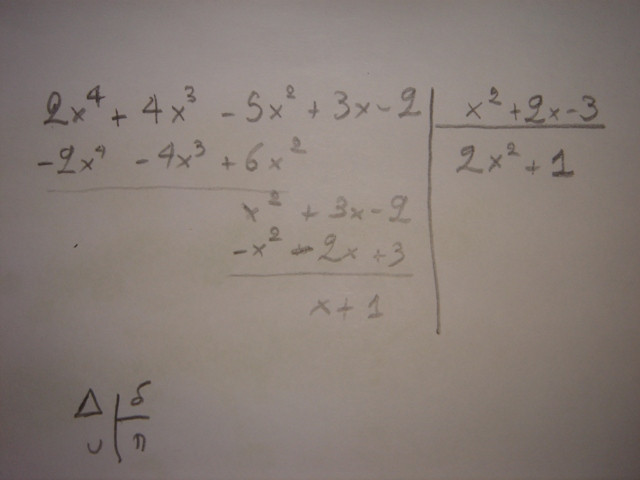 2x⁴ + 4x³ - 5x² + 3x - 2 | x² + 2x - 3
-2x⁴ - 4x³ + 6x² | 2x² + 1
x² + 3x - 2
-x² - 2x + 3
x + 1
Δ | δ
υ | π